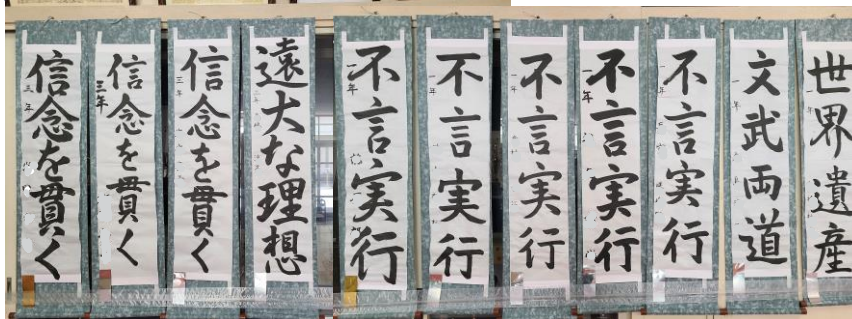 信念を貫く
三年
信念を貫く
三年
信念を貫く
三年
遠大な理想
二年
不言実行
一年
不言実行
一年
不言実行
一年
不言実行
一年
不言実行
一年
文武両道
一年
世界遺産